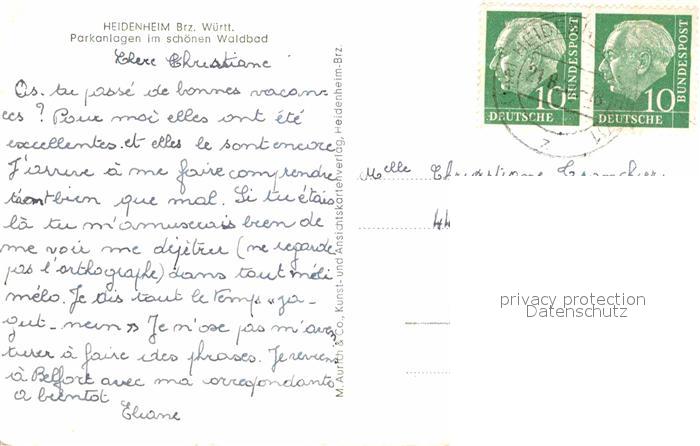 HEIDENHEIM Brz. Württ.
Parkanlagen im schönen Waldbad
Chere Christiane
As. tu passé de bonnes vacan-
ces ? Pour moi elles ont été
excellentes. et elles le sont encore
J'arrive à me faire comprendre
tant bien que mal. Si tu étais
là tu m'amuserais bien de
me voir me dépêtrer (ne regarde
pas l'orthographe) dans tout méli
mélo. Je dis tout le temps « ja -
gut - nein » Je n'ose pas m'aven
turer à faire des phrases. Je reviens
à Belfort avec ma orrespondante
a bientot
Eliane
M. Aurich & Co., Kunst- und Ansichtskartenverlag, Heidenheim-Brz.
DEUTSCHE BUNDESPOST 10
DEUTSCHE BUNDESPOST 10
Melle Christiane
44
privacy protection
Datenschutz